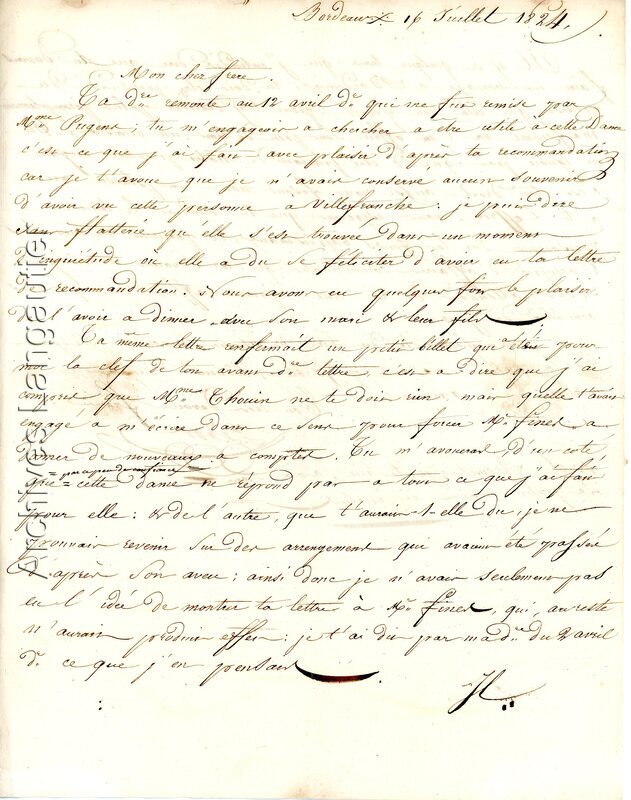 Bordeaux 16 Juillet 1824.
Mon cher frere.
Ta dre remonte au 12 avril dr qui me fut remise par
Mme Pugens; tu m'engageois a chercher a être utile a cette Dame
c'est ce que j'ai fait avec plaisir d'après ta recommandation
car je t'avoue que je n'avais conservé aucun souvenir
d'avoir vu cette personne à Villefranche: je puis dire
sans flatterie qu'elle s'est trouvée dans un moment
d'inquiétude ou elle a du se féliciter d'avoir eu ta lettre
de recommandation. Nous avons eu quelques fois le plaisir
de l'avoir a diner avec son mari & leur fils
Ta même lettre renfermait un petit billet qui a été pour
moi la clef de ton avant dre lettre, c'est a dire que j'ai
compris que Mme Thouin ne te doit rien mais quelle t'avait
engagé a m'écrire dans ce sens pour forcer Mr. Fines a
donner de nouveaux a comptes. Tu m'avoueras, d'un coté
= par a peu de confiance =
que = cette dame ne répond pas a tout ce que j'ai fait
pour elle: & de l'autre, que t'aurait-elle du, je ne
pouvais revenir sur des arrangement qui avaient été passés
d'après son aveu: ainsi donc je n'avais seulement pas
eu l'idée de montrer ta lettre à Mr. Fines, qui, au reste
n'aurait produit effet: je t'ai dit par ma dre du 2 avril
dr ce que j'en pensais
Archives Langanie